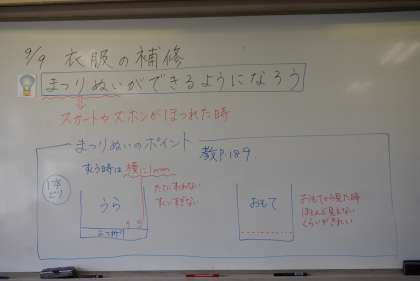 9/9 衣服の補修
まつりぬいができるようになろう
スカートやズボンがほつれた時
まつりぬいのポイント
教P.189
ぬう時は横に1mm
たてにすくわない
すくいすぎない
うら
三つ折り
おもて
おもてから見た時
ほとんど見えない
くらいがきれい